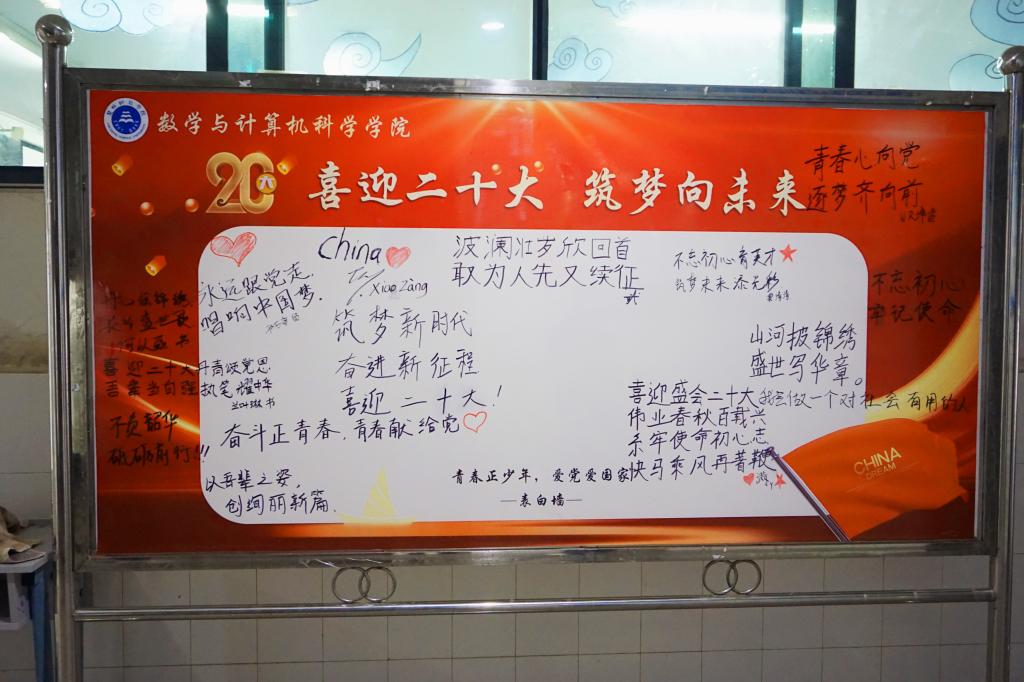 数学与计算机科学学院
喜迎二十大 筑梦向未来
青春心向党
逐梦齐向前
China
永远跟党走
唱响中国梦.
Xiao Zàng
波澜壮岁欣回首
取为人先又续征
不忘初心育英才
筑梦未来添光彩
不忘初心
牢记使命
筑梦新时代
奋进新征程
喜迎二十大!
奋斗正青春,青春献给党
山河披锦绣
盛世写华章。
喜迎二十大丹青颂党恩
吾辈当自强执笔耀中华
不负韶华
砥砺前行!!!
以吾辈之姿,
创绚丽新篇.
喜迎盛会二十大
伟业春秋百载兴
牢使命初心志
快马乘风再著鞭
做一个对社会有用的人
青春正少年,爱党爱国家
—表白墙—
CHINA
DREAM